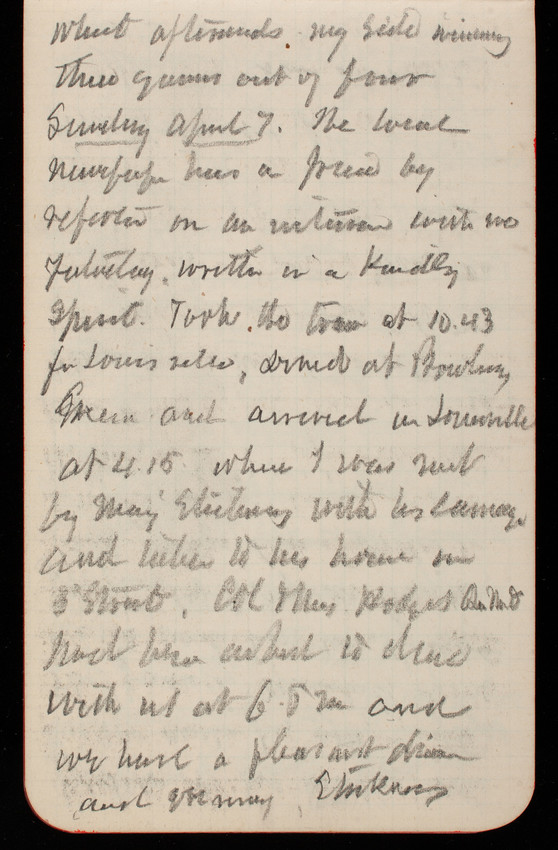 whist afterwards my side winning
three games out of four
Sunday April 7. The local
newspaper has a piece by
reporter on an interview with me
yesterday, written in a kindly
spirit. Took the train at 10.43
for Louisville, dined at Bowling
Green and arrived in Louisville
at 4.15 where I was met
by Maj Stickney with his carriage
and taken to his home on
3d Street. Col & Mrs Hodges
had been asked to dine
with us at 6 P M and
we had a pleasant dinner
and evening Stickney